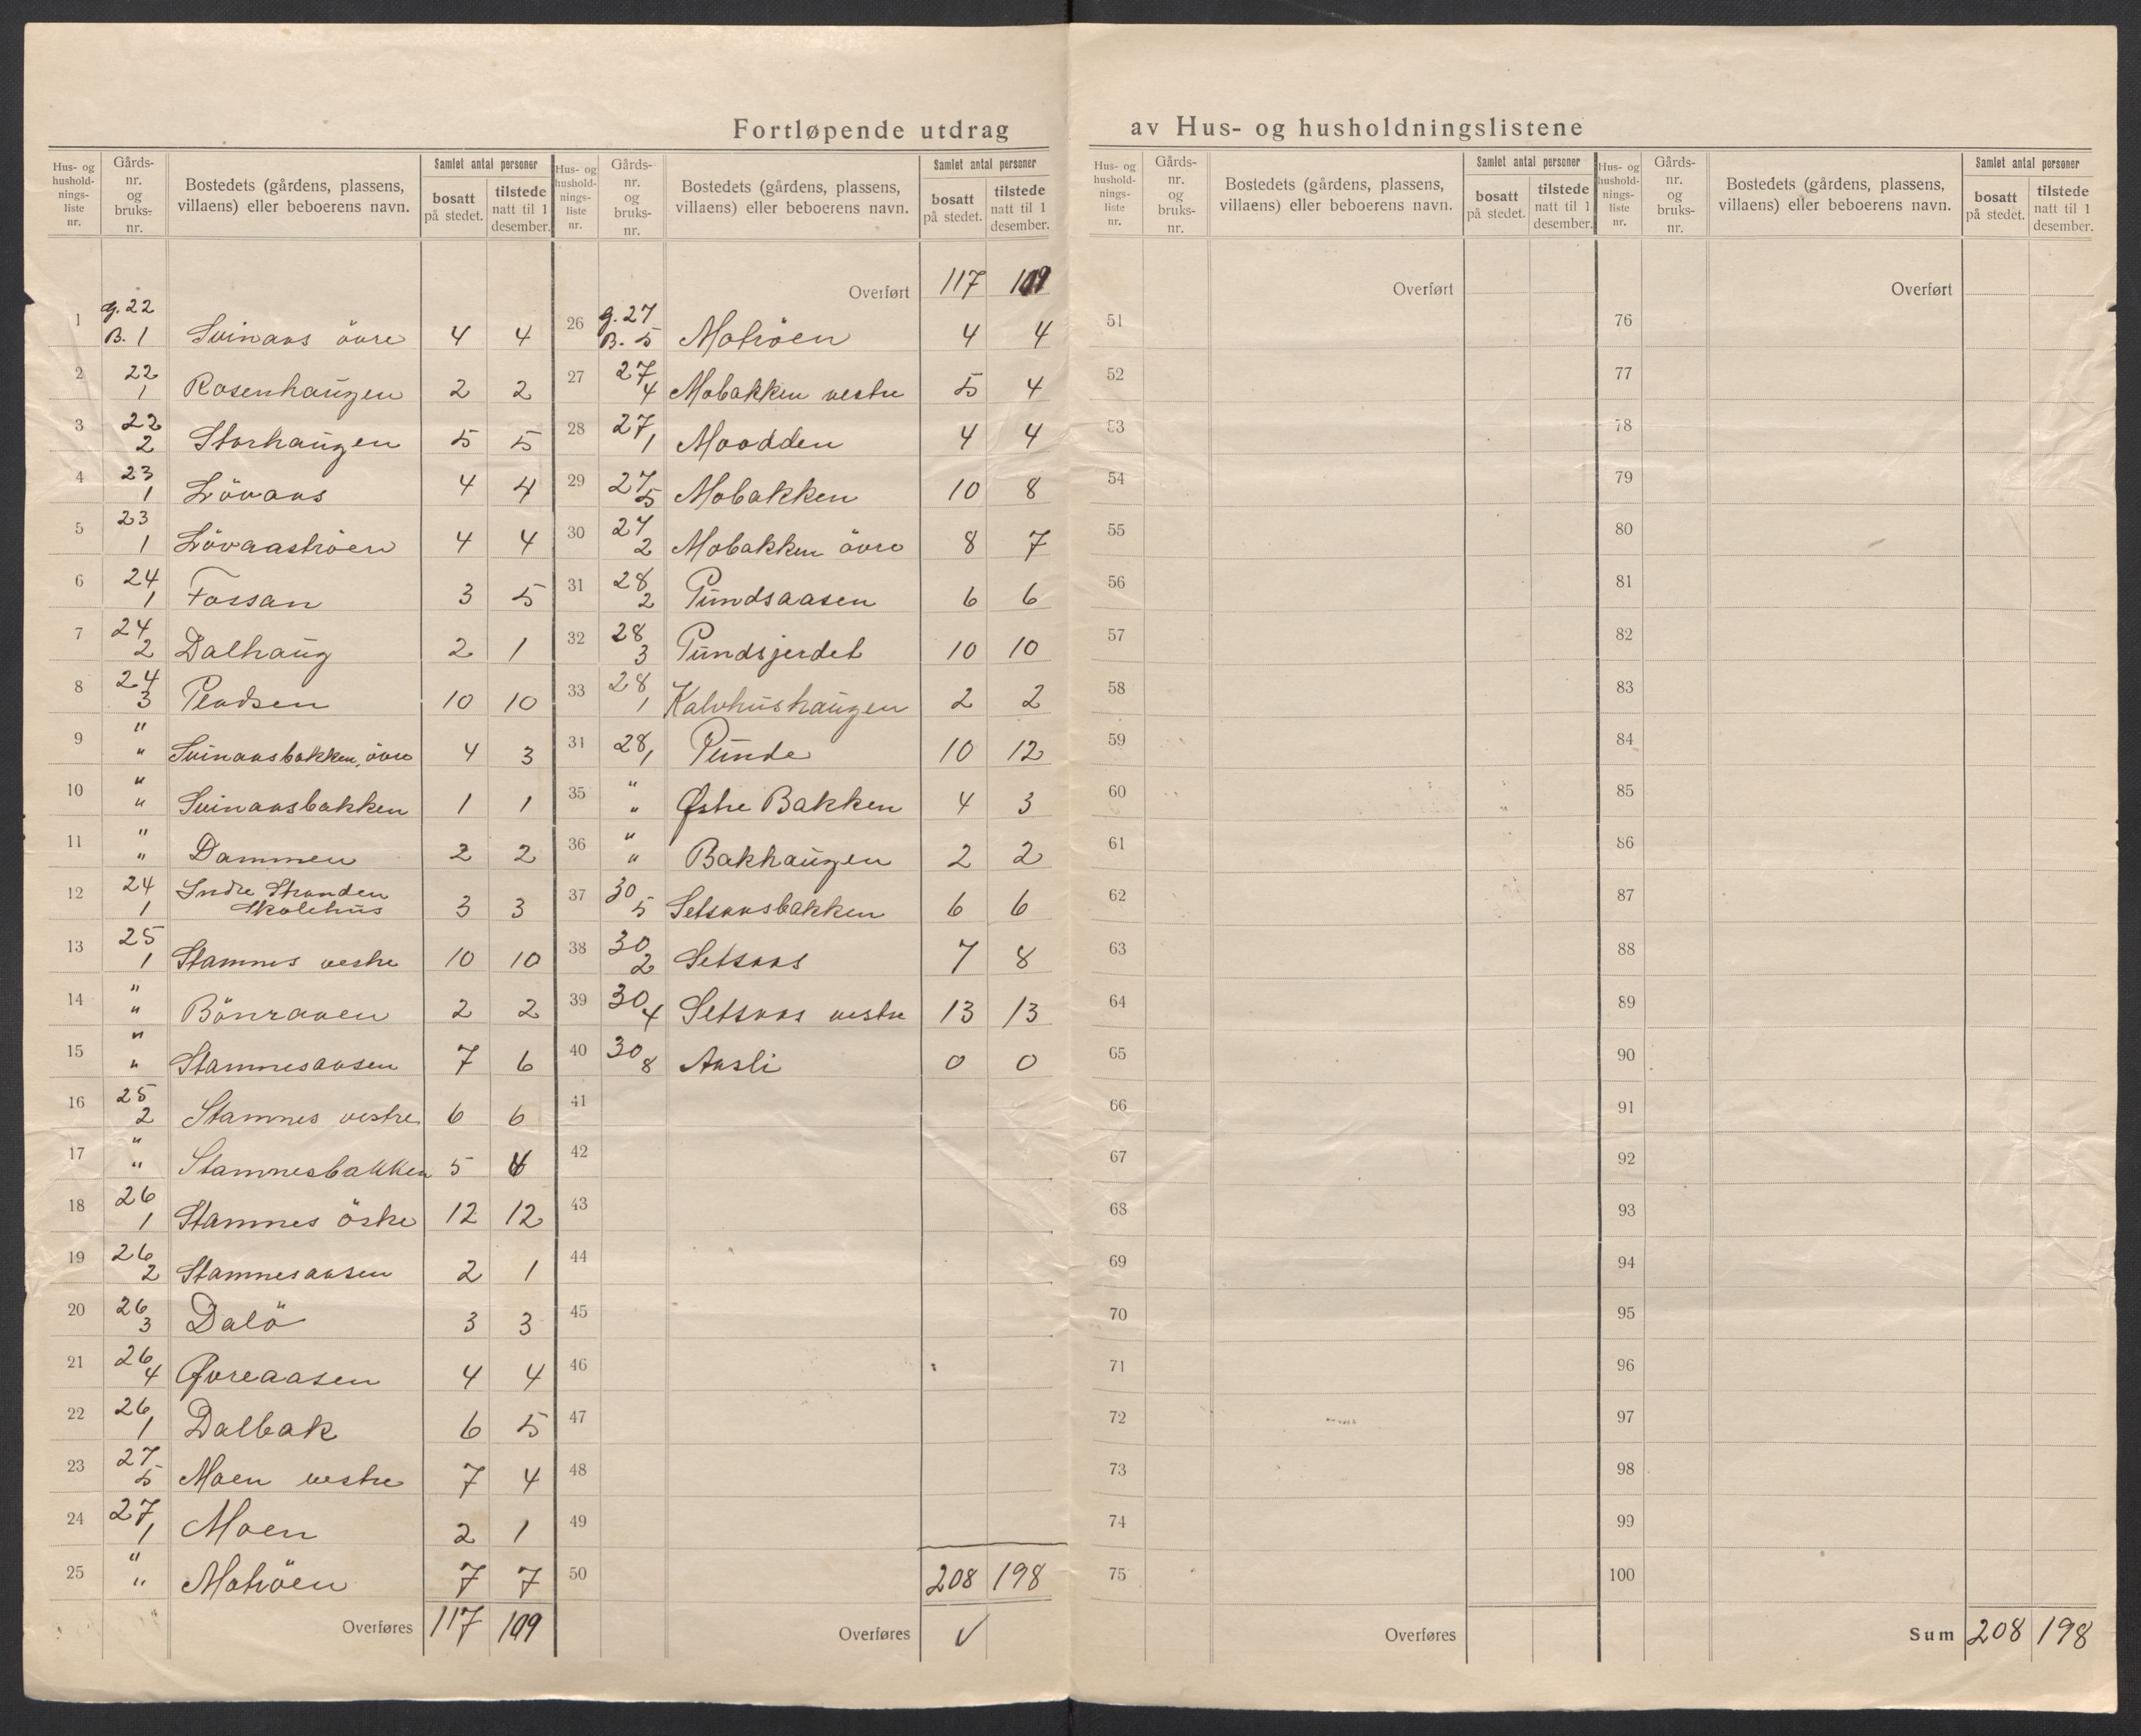 Fortløpende utdrag av Hus- og husholdningslistene
Hus- og husholdnings-liste nr. Gårds-nr. og bruks-nr. Bostedets (gårdens, plassens, villaens) eller beboerens navn. Samlet antal personer bosatt på stedet. tilstede natt til 1 desember.
1 G. 22 B. 1 Svinaas övre 4 4
2 22 1 Rosenhaugen 2 2
3 22 2 Storhaugen 5 5
4 23 1 Lövaas 4 4
5 23 1 Lövaaströen 4 4
6 24 1 Fossan 3 5
7 24 2 Dalhaug 2 1
8 24 3 Pladsen 10 10
9 " " Svinaasbakken, övre 4 3
10 " " Svinaasbakken 1 1
11 " " Dammen 2 2
12 24 1 Indre Stranden Skolehus 3 3
13 25 1 Stamnes vestre 10 10
14 " " Bönraaen 2 2
15 " " Stamnesaasen 7 6
16 25 2 Stamnes vestre 6 6
17 " " Stamnesbakken 5 4
18 26 1 Stamnes östre 12 12
19 26 2 Stamnesaasen 2 1
20 26 3 Dalö 3 3
21 26 4 Øvreaasen 4 4
22 26 1 Dalbak 6 5
23 27 5 Moen vestre 7 4
24 27 1 Moen 2 1
25 " " Motröen 7 7
Overføres 117 109
Hus- og husholdnings-liste nr. Gårds-nr. og bruks-nr. Bostedets (gårdens, plassens, villaens) eller beboerens navn. Samlet antal personer bosatt på stedet. tilstede natt til 1 desember.
Overført 117 109
26 G. 27 B. 5 Motröen 4 4
27 27 4 Mobakken vestre 5 4
28 27 1 Moodden 4 4
29 27 5 Mobakken 10 8
30 27 2 Mobakken övre 8 7
31 28 2 Pundsaasen 6 6
32 28 3 Pundsjerdet 10 10
33 28 1 Kalvhushaugen 2 2
34 28 1 Punde 10 12
35 " " Østre Bakken 4 3
36 " " Bakhaugen 2 2
37 30 5 Setsaasbakken 6 6
38 30 2 Setsaas 7 8
39 30 4 Setsaas vestre 13 13
40 30 8 Aasli 0 0
41
42
43
44
45
46
47
48
49
50 208 198
Overføres √
Hus- og husholdnings-liste nr. Gårds-nr. og bruks-nr. Bostedets (gårdens, plassens, villaens) eller beboerens navn. Samlet antal personer bosatt på stedet. tilstede natt til 1 desember.
Overført
51
52
53
54
55
56
57
58
59
60
61
62
63
64
65
66
67
68
69
70
71
72
73
74
75
Overføres
Hus- og husholdnings-liste nr. Gårds-nr. og bruks-nr. Bostedets (gårdens, plassens, villaens) eller beboerens navn. Samlet antal personer bosatt på stedet. tilstede natt til 1 desember.
Overført
76
77
78
79
80
81
82
83
84
85
86
87
88
89
90
91
92
93
94
95
96
97
98
99
100
Sum 208 198